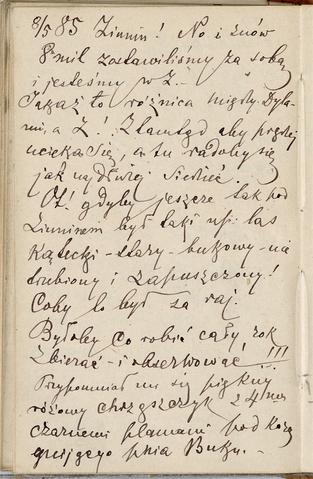 8/5 85 Żinnin! No i znów
8 mil zostawiliśmy za sobą
i jesteśmy w Ż.
Jakaż to różnica między Byla-
mi, a Ż! Ztamtąd aby prędzej
ucieka się, a tu radoby się
jak najdłużej siedzieć.
Ot! gdyby jeszcze tak pod
Żinninem był taki np. las
Kątecki - stary - bukowy - nie
trzebiony i zapuszczony!
Coby to był za raj.
Byłoby co robić cały rok
zbierać - i obserwować!!!
Przypomniał mi się piękny
różowy chrząszczyk z 4ma
czarnemi plamami pod korą
gnijącego pnia Buku. -